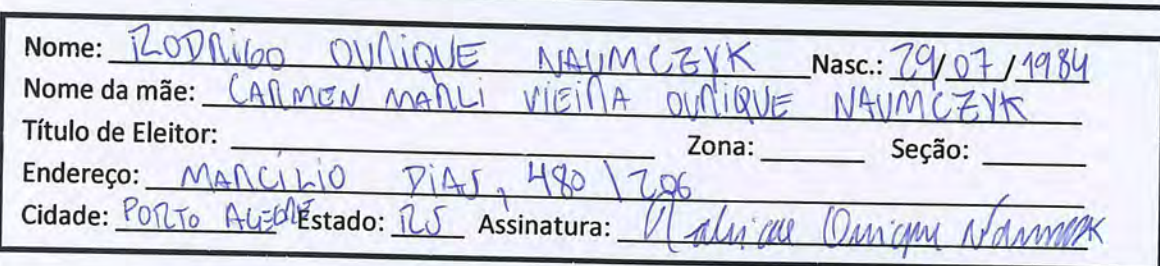 Nome: RODRIGO OURIQUE NAUMCZYK Nasc.: 29/07/1984
Nome da mãe: CARMEN MARLI VIEIRA OURIQUE NAUMCZYK
Título de Eleitor: Zona: Seção:
Endereço: MARCÍLIO DIAS, 480 \ 206
Cidade: PORTO ALEGRE Estado: RS Assinatura: Ourique